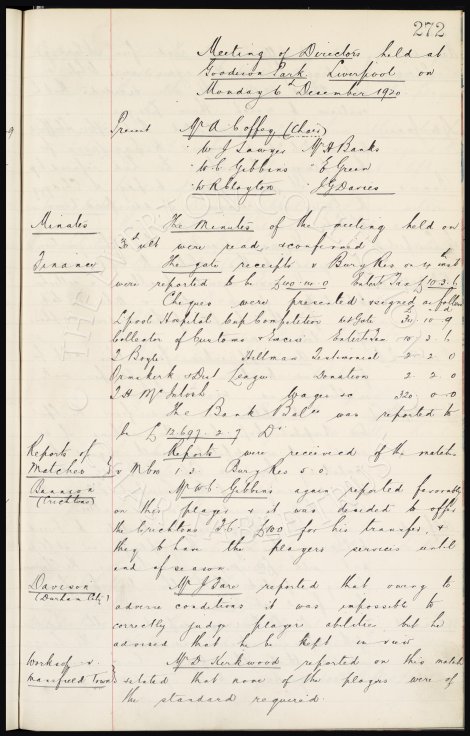 272
Meeting of Directors held at
Goodison Park Liverpool on
Monday 6th December 1920
Present Mr A Coffey (Chair)
" W J Sawyer Mr H Banks
" W. C. Gibbins " E Green
" W R Clayton " J G Davies
Minutes The Minutes of the meeting held on
30th ult were read & confirmed
Finance The gate receipts v Bury Res on 4th inst
were reported to be Entert Tax £10.3.6
Cheques were presented & signed as follows
£ s d
Lpool Hospital Cup Competition Gate 10 9
Collector of Customs & Excise Entert Tax 10 3 6
T Boyle Hillman Testimonial 2 2 0
Ormskirk & Dist League Donation 2 2 0
T. H. McIntosh Wages &c 320 0 0
The Bank Balce was reported to
be £ 12,697. 2. 7 Dr
Reports of Matches } Reports were received of the matches
v M'bro 1.3 Bury Res 5.0
Bannion (Crichtons) Mr W C Gibbins again reported favorably
on this player & it was decided to offer
the Crichtons F.C. £100 for his transfer, &
they to have the players services until
end of season
Davison (Durham City) Mr J Bare reported that owing to
adverse conditions it was impossible to
correctly judge players abilities but he
advised that he be kept in view
Worksop v. Mansfield Town } Mr D Kirkwood reported on this match
& stated that none of the players were of
the standard required.